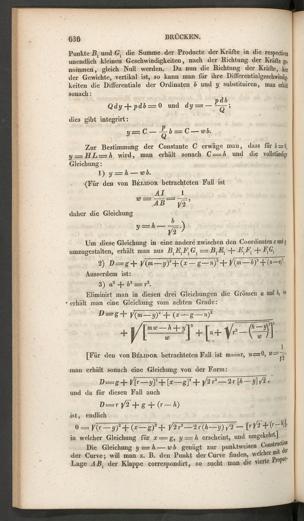 636 BRÜCKEN.
Punkte B, und G, die Summe der Producte der Kräfte in die respectiven
unendlich kleinen Geschwindigkeiten, nach der Richtung der Kräfte ge-
nommen, gleich Null werden. Da nun die Richtung der Kräfte, hier
der Gewichte, vertikal ist, so kann man für ihre Differentialgeschwindig-
keiten die Differentiale der Ordinaten b und y substituiren, man erhält
sonach:
Q dy + p db = 0 und dy = − p db / Q ;
dies gibt integrirt:
y = C − p/Q b = C − wb.
Zur Bestimmung der Constante C erwäge man, dass für b = 0,
y = HL = h wird, man erhält sonach C = h und die vollständige
Gleichung:
1) y = h − wb.
(Für den von BÉLIDOR betrachteten Fall ist
w = AI/AB = 1/√2,
daher die Gleichung
y = h − b/√2.)
Um diese Gleichung in eine andere zwischen den Coordinaten x und y
umzugestalten, erhält man aus
Ausserdem ist:
3) a² + b² = r².
Eliminirt man in diesen drei Gleichungen die Grössen a und b, so
erhält man eine Gleichung vom achten Grade:
D = g + √(m−y)² + (x−g−n)²
[Für den von BÉLIDOR betrachteten Fall ist m=r, n=0, w=1/√2
man erhält sonach eine Gleichung von der Form:
D = g + √[r−y]² + [x−g]² + √2r² − 2r[h−y]√2,
und da für diesen Fall auch
D = r√2 + g + (r−h)
ist, endlich
0 = √(r−y)² + (x−g)² + √2r² − 2r(h−y)√2 − [r√2 + (r−h)],
in welcher Gleichung für x = g, y = h erscheint, und umgekehrt.]
Die Gleichung y = h − wb genügt zur punktweisen Construction
der Curve; will man z. B. den Punkt der Curve finden, welcher mit der
Lage AB, der Klappe correspondirt, so sucht man die vierte Propor-